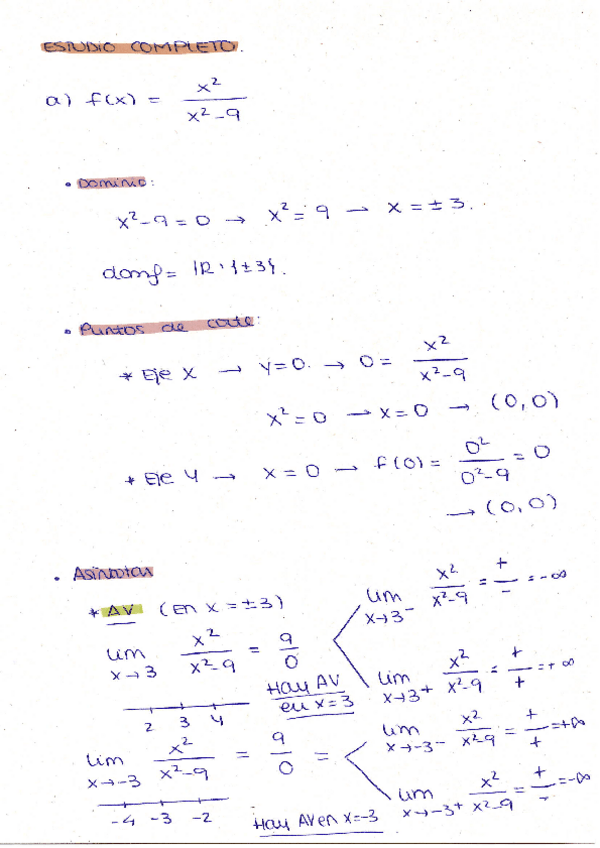 ESTUDIO COMPLETO.
a) f(x) = x²/(x²-9)
• Dominio:
x²-9=0 → x²=9 → x=±3.
domf= ℝ\{±3}.
• Puntos de corte:
* Eje X → y=0. → 0= x²/(x²-9)
x²=0 → x=0 → (0,0)
* Eje Y → x=0 → f(0)= 0²/(0²-9) = 0
→ (0,0)
• Asíntotas
* AV (En x=±3)
lim x→3 x²/(x²-9) = 9/0
lim x→3⁻ x²/(x²-9) = +/- = -∞
lim x→3⁺ x²/(x²-9) = +/+ = +∞
Hay AV
en x=3
2 3 4
lim x→-3 x²/(x²-9) = 9/0 =
lim x→-3⁻ x²/(x²-9) = +/+ = +∞
lim x→-3⁺ x²/(x²-9) = +/- = -∞
-4 -3 -2
Hay AV en x=-3